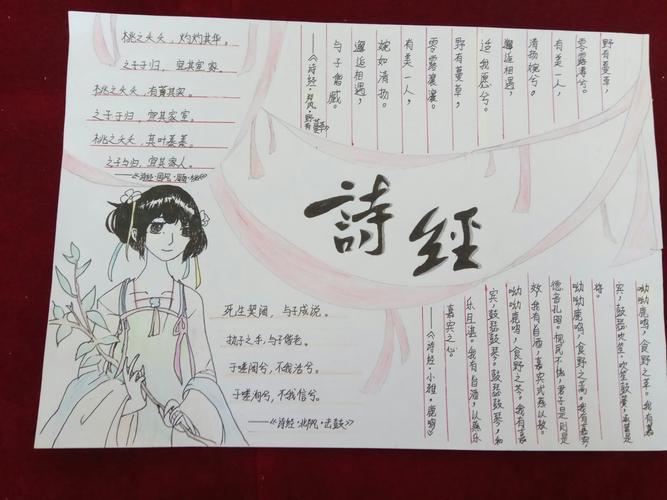 桃之夭夭，灼灼其华。
之子于归，宜其室家。
桃之夭夭，有蕡其实。
之子于归，宜其家室。
桃之夭夭，其叶蓁蓁。
之子于归，宜其家人。
——《诗经·国风·周南·桃夭》
野有蔓草，
零露漙兮。
有美一人，
清扬婉兮。
邂逅相遇，
适我愿兮。
野有蔓草，
零露瀼瀼。
有美一人，
婉如清扬。
邂逅相遇，
与子偕臧。
——《诗经·郑风·野有蔓草》
詩經
死生契阔，与子成说。
执子之手，与子偕老。
于嗟阔兮，不我活兮。
于嗟洵兮，不我信兮。
——《诗经·邶风·击鼓》
呦呦鹿鸣，食野之苹。我有嘉
宾，鼓瑟吹笙。吹笙鼓簧，承筐是
将。
呦呦鹿鸣，食野之蒿。我有嘉宾，
德音孔昭。视民不恌，君子是则是
效。我有旨酒，嘉宾式燕以敖。
呦呦鹿鸣，食野之芩。我有嘉
宾，鼓瑟鼓琴。鼓瑟鼓琴，和
乐且湛。我有旨酒，以燕乐
嘉宾之心。
——《诗经·小雅·鹿鸣》